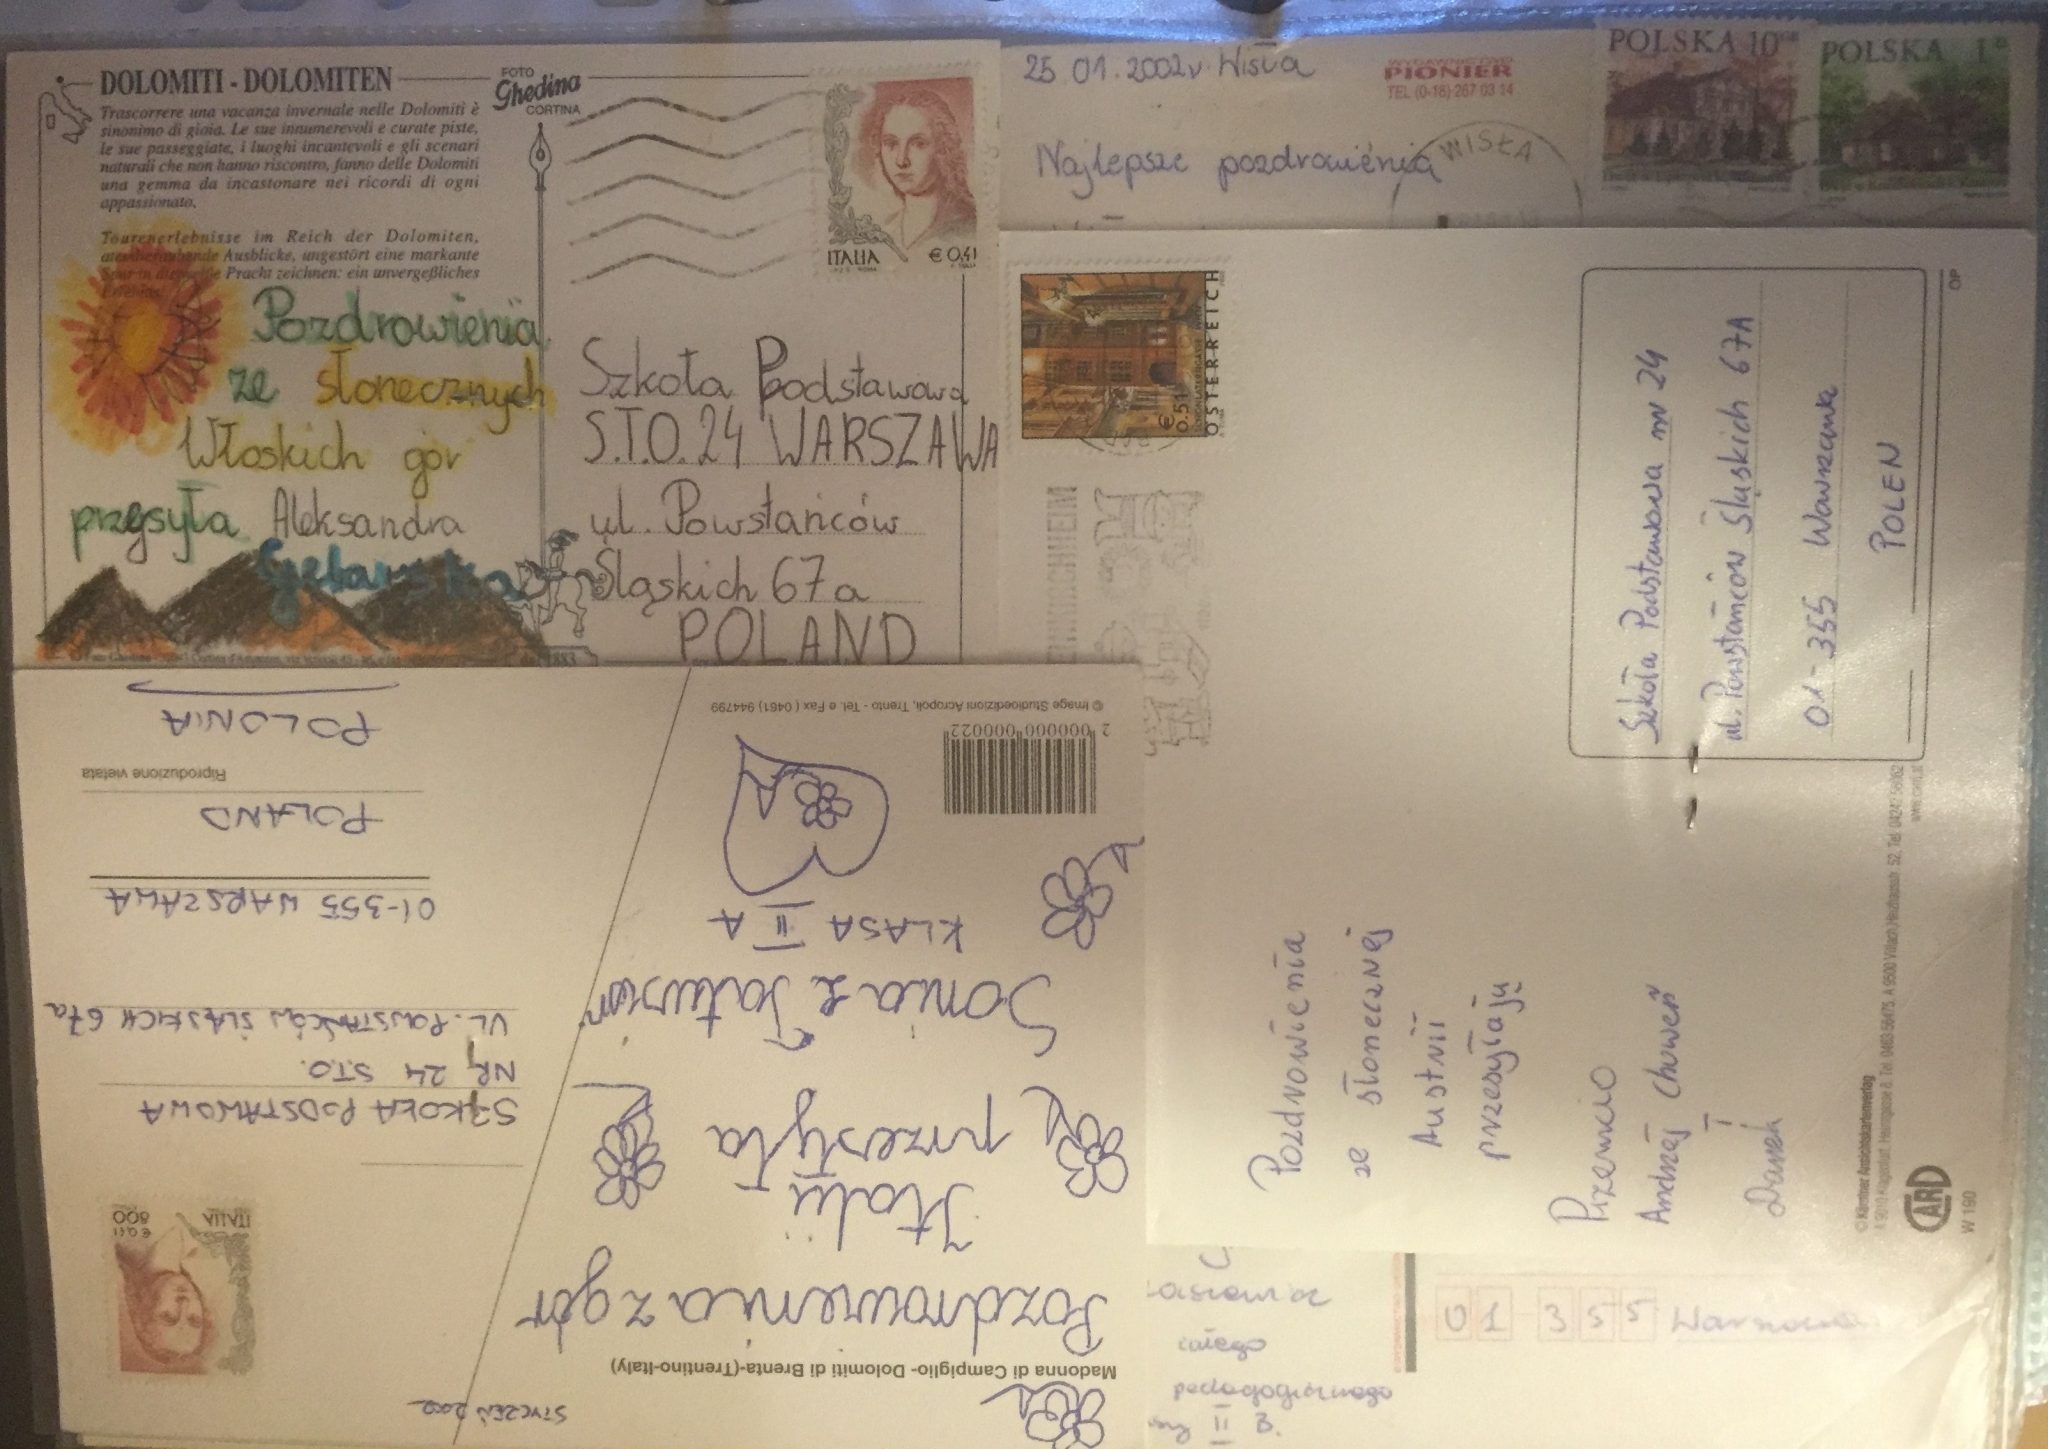 DOLOMITI - DOLOMITEN
FOTO
Ghedina
CORTINA
Trascorrere una vacanza invernale nelle Dolomiti è
sinonimo di gioia. Le sue innumerevoli e curate piste,
le sue passeggiate, i luoghi incantevoli e gli scenari
naturali che non hanno riscontro, fanno delle Dolomiti
una gemma da incastonare nei ricordi di ogni
appassionato.
Tourenerlebnisse im Reich der Dolomiten,
atemberaubende Ausblicke, ungestört eine markante
Spur in die weiße Pracht zeichnen: ein unvergeßliches
Erlebnis.
Pozdrowienia
ze słonecznych
Włoskich gór
przesyła Aleksandra
ITALIA € 0,41
Szkoła Podstawowa
S.T.O. 24 WARSZAWA
ul. Powstańców
Śląskich 67a
POLAND
25.01.2002r. Wisła
PIONIER
TEL (0-18) 267 03 14
Najlepsze pozdrowienia
WISŁA
POLSKA 10
POLSKA 1
€ 0.51
ÖSTERREICH
Szkoła Podstawowa nr 24
ul. Powstańców Śląskich 67A
01-355 Warszawa
POLEN
OP
Pozdrowienia
ze słonecznej
Austrii
przesyłają
Przemcio
Andrzej Choweń
i
Darek
© Kärntner Ansichtskartenverlag
CARD
W 190
Madonna di Campiglio- Dolomiti di Brenta-(Trentino-Italy)
STYCZEŃ 2002
Pozdrowienia z gór
Italii
przesyła
Sonia
KLASA II A
ITALIA
€ 0,41
800
SZKOŁA PODSTAWOWA
NR 24 STO.
UL. POWSTAŃCÓW ŚLĄSKICH 67a
01-355 WARSZAWA
POLAND
Riproduzione vietata
POLONIA
2 000000 000022
© Image Studioedizioni Acropoli, Trento - Tel. e Fax (0461) 944799
całego
pedagogicznego
II B.
01-355 Warszawa